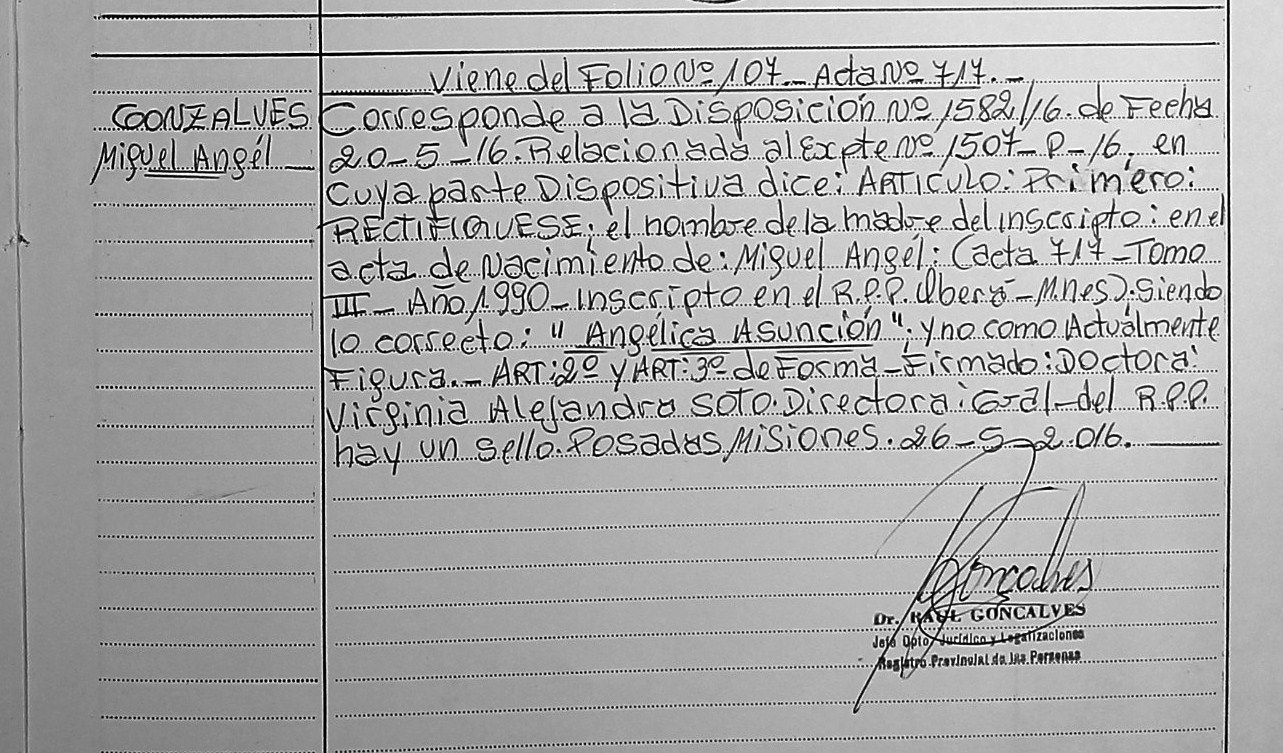 Viene del Folio Nº 107 - Acta Nº 717. -
GONZALVES
Miguel Angél
Corresponde a la Disposición Nº 1582/16. de Fecha
20-5-16. Relacionada al Expte Nº 1507-P-16, en
cuya parte Dispositiva dice: ARTICULO: Primero:
RECTIFIQUESE: el nombre de la madre del inscripto: en el
acta de Nacimiento de: Miguel Angél: (acta 717 - Tomo
III - Año 1.990 - inscripto en el R.P.P. Oberá - Mnes). Siendo
lo correcto: "Angélica Asunción"; y no como Actualmente
Figura. - ART: 2º y ART: 3º de Forma - Firmado: Doctora:
Virginia Alejandra SOTO. Directora: Gral - del R.P.P.
hay un sello. Posadas, Misiones. 26-5-2.016.
Goncalves
Dr. RAUL GONCALVES
Jefe Dpto Jurídico y Legalizaciones
Registro Provincial de las Personas